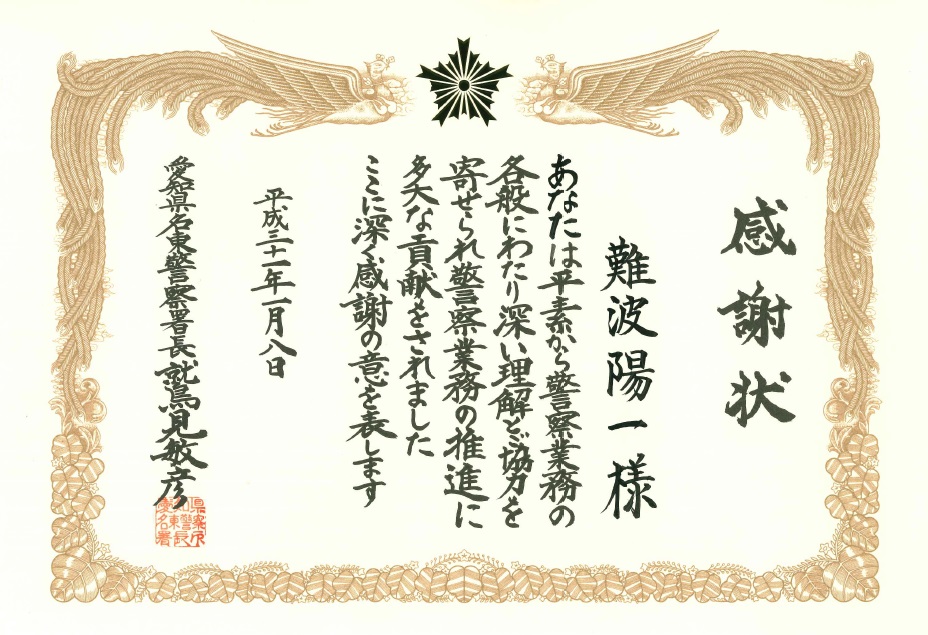 感謝状
難波陽一様
あなたは平素から警察業務の
各般にわたり深い理解とご協力を
寄せられ警察業務の推進に
多大な貢献をされました
ここに深く感謝の意を表します
平成三十一年一月八日
愛知県名東警察署長 鷲見敏彦